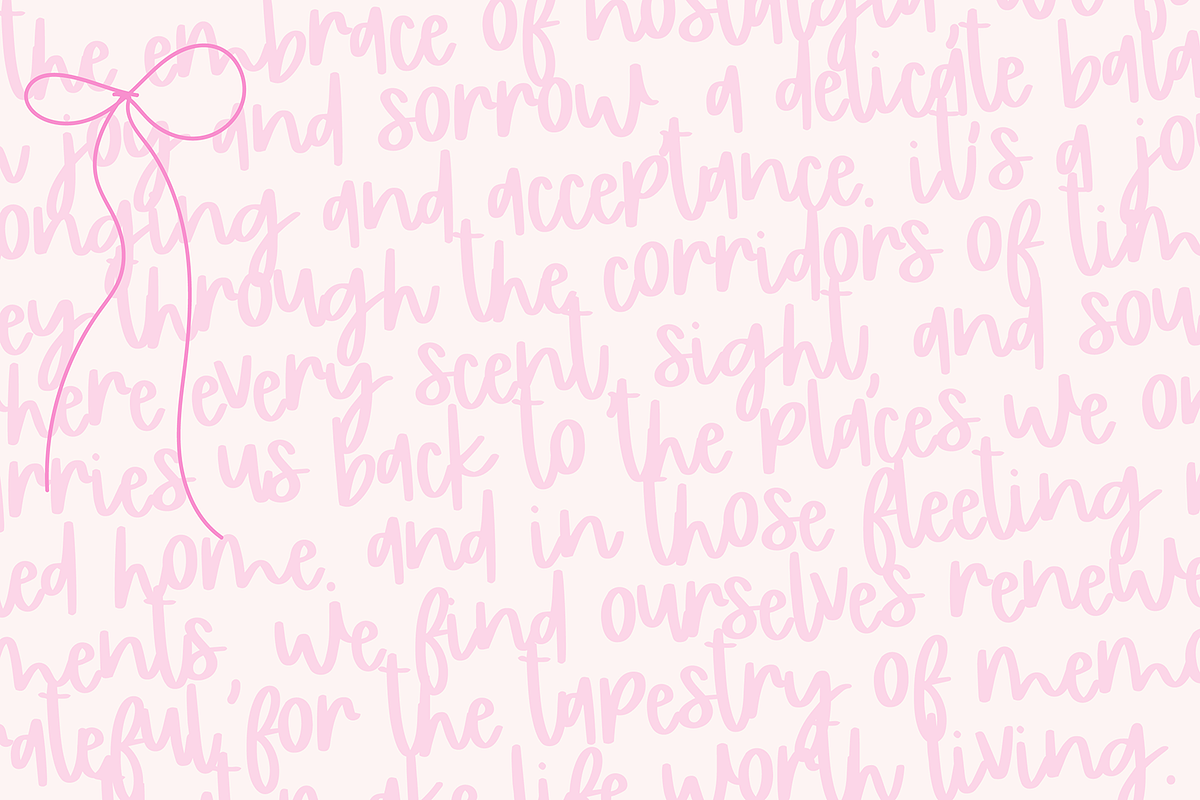 the embrace of nostalgia, we
joy and sorrow, a delicate bala
onging and acceptance. it's a jou
ey through the corridors of tim
here every scent, sight, and sou
rries us back to the places we on
ed home. and in those fleeting
ments, we find ourselves renewe
ateful for the tapestry of memo
life worth living.